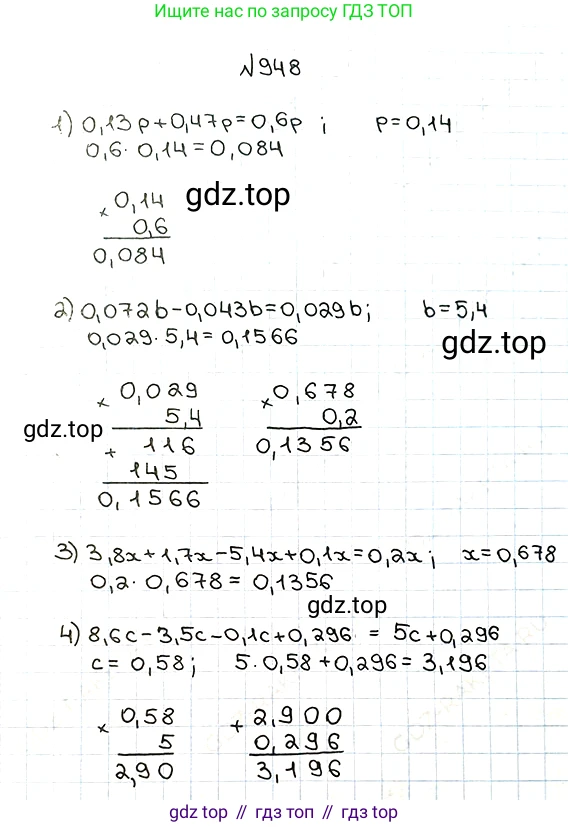 Ищите нас по запросу ГДЗ ТОП
№948
1) 0,13p+0,47p=0,6p ; p=0,14
0,6· 0,14=0,084
× 0,14
0,6
0,084
gdz.top
2) 0,072b-0,043b=0,029b; b=5,4
0,029·5,4=0,1566
gdz.top
× 0,029 × 0,678
5,4 0,2
gdz.top
+ 116 0,1356
145
0,1566
3) 3,8x+1,7x-5,4x+0,1x=0,2x; x=0,678
0,2· 0,678= 0,1356
gdz.top
4) 8,6c-3,5c-0,1c+0,296 = 5c+0,296
c= 0,58; 5·0,58+0,296= 3,196
× 0,58 + 2,900
5 0,296
2,90 3,196
gdz.top // гдз топ // gdz.top